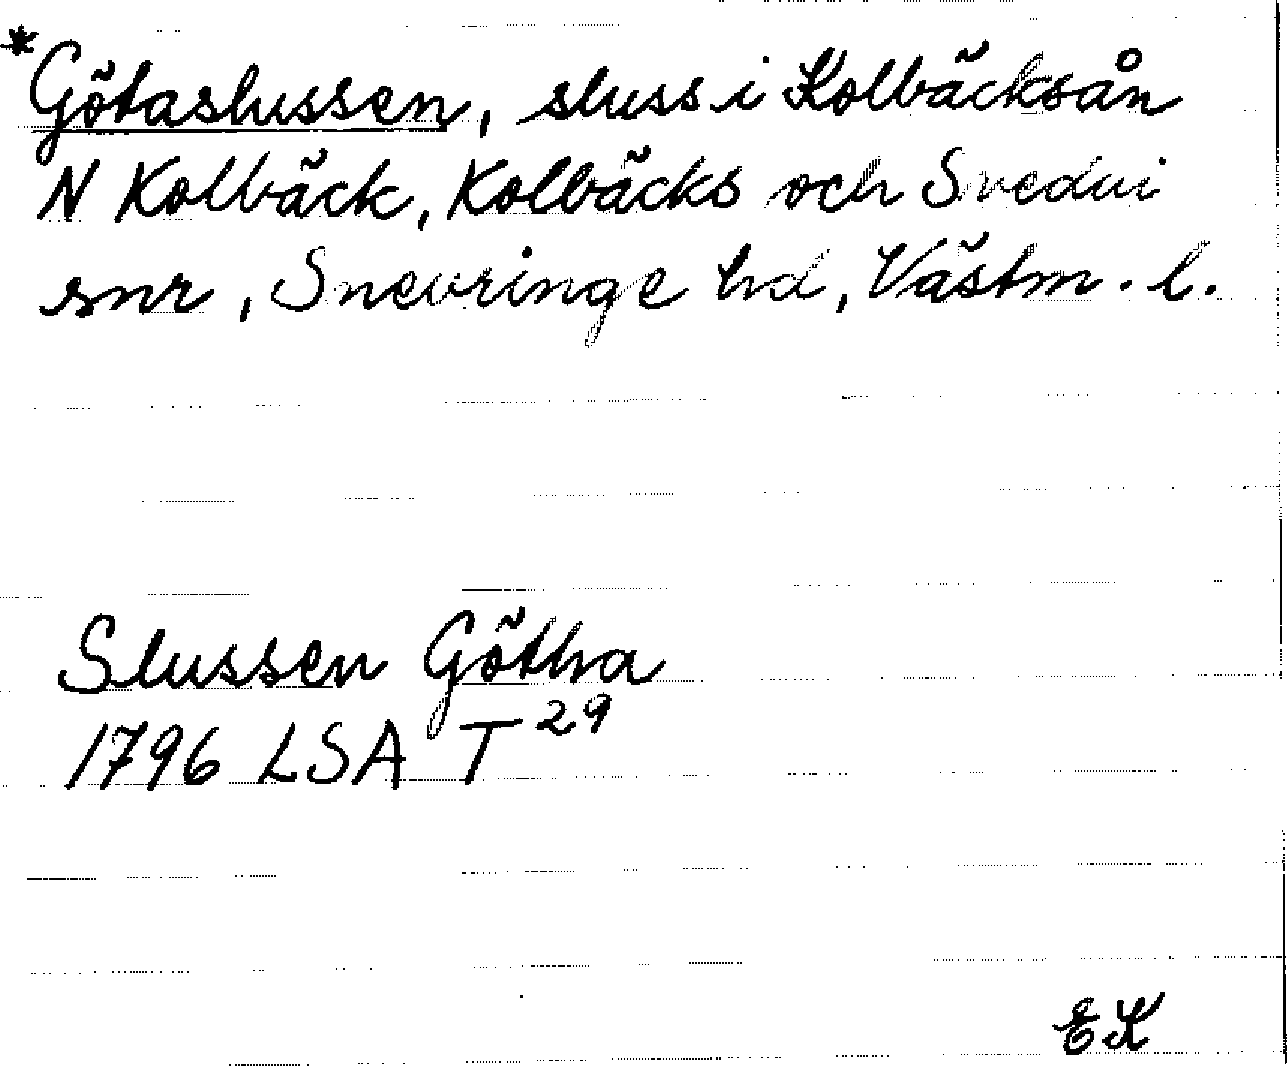 *Götaslussen, sluss i Kolbäcksån
N Kolbäck, Kolbäcks och Svedvi
snr, Snevringe hd, Västm. l.
Slussen Götha
1796 LSA T 29
EK